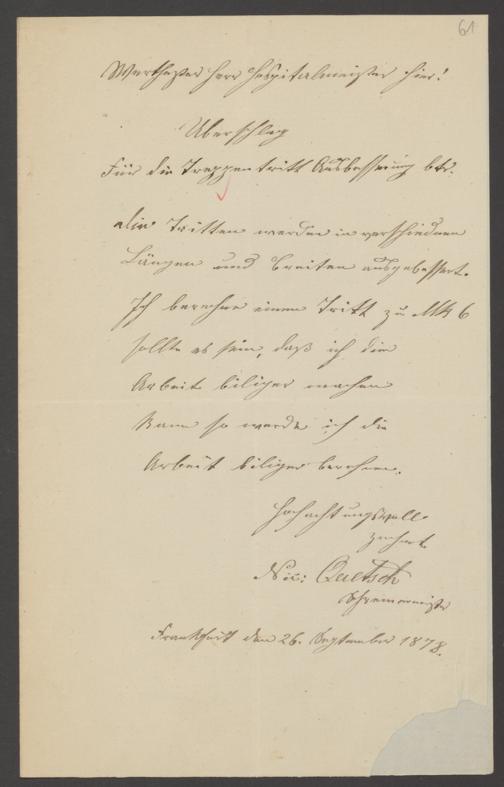 61
Werthester Herr Hospitalmeister hier!
Überschlag
Für die Treppentritt Ausbesserung btr.
Tritten werden in verschiedenen
Längen und Breiten ausgebessert.
Ich berechne einen Tritt zu Mk 6
sollte es sein, daß ich die
Arbeit biliger machen
Kann so werde ich die
Arbeit biliger berechnen.
Hochachtungsvoll
Nic: Quetsch
Schreinermeister
Frankfurt den 26. September 1878.